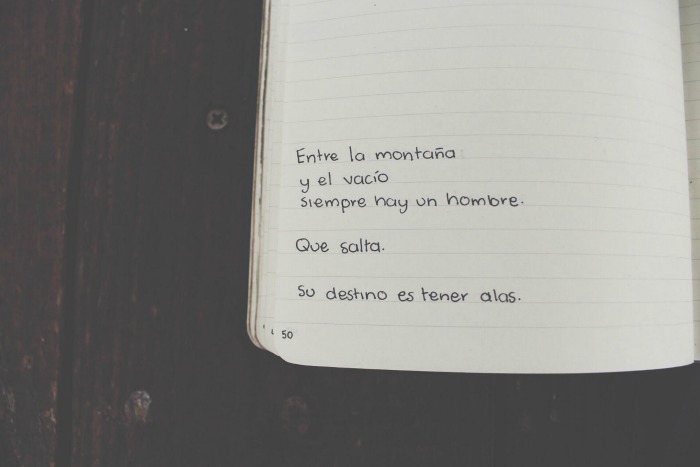 Entre la montaña
y el vacío
siempre hay un hombre.
Que salta.
Su destino es tener alas.
50